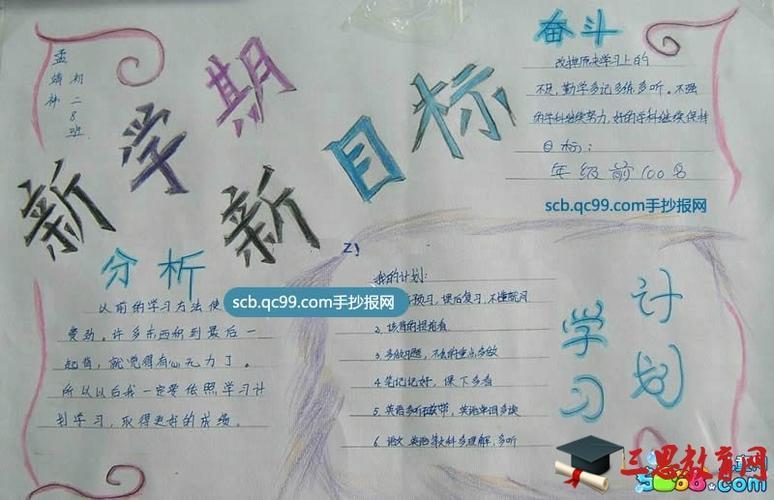 孟
初二8班
新学期
新目标
奋斗
改掉原来学习上的
不足,勤学多记多练多听。不强
的学科继续努力,好的学科继续保持
目标:
年级前100名
scb.qc99.com手抄报网
分析
以前的学习方法使
费劲。许多东西积到最后一
起背,就觉得有心无力了。
所以以后我一定要依照学习计
划学习,取得更好的成绩。
scb.qc99.com手抄报网
我的计划:
预习,课后复习,不懂就问
2、该背的提前背
3、多做习题,不会的重点多做
4、笔记记好,课下多看
5、英语多听磁带,英语单词多读
6、语文 英语等大科多理解,多听
学习
计划
三思教育网